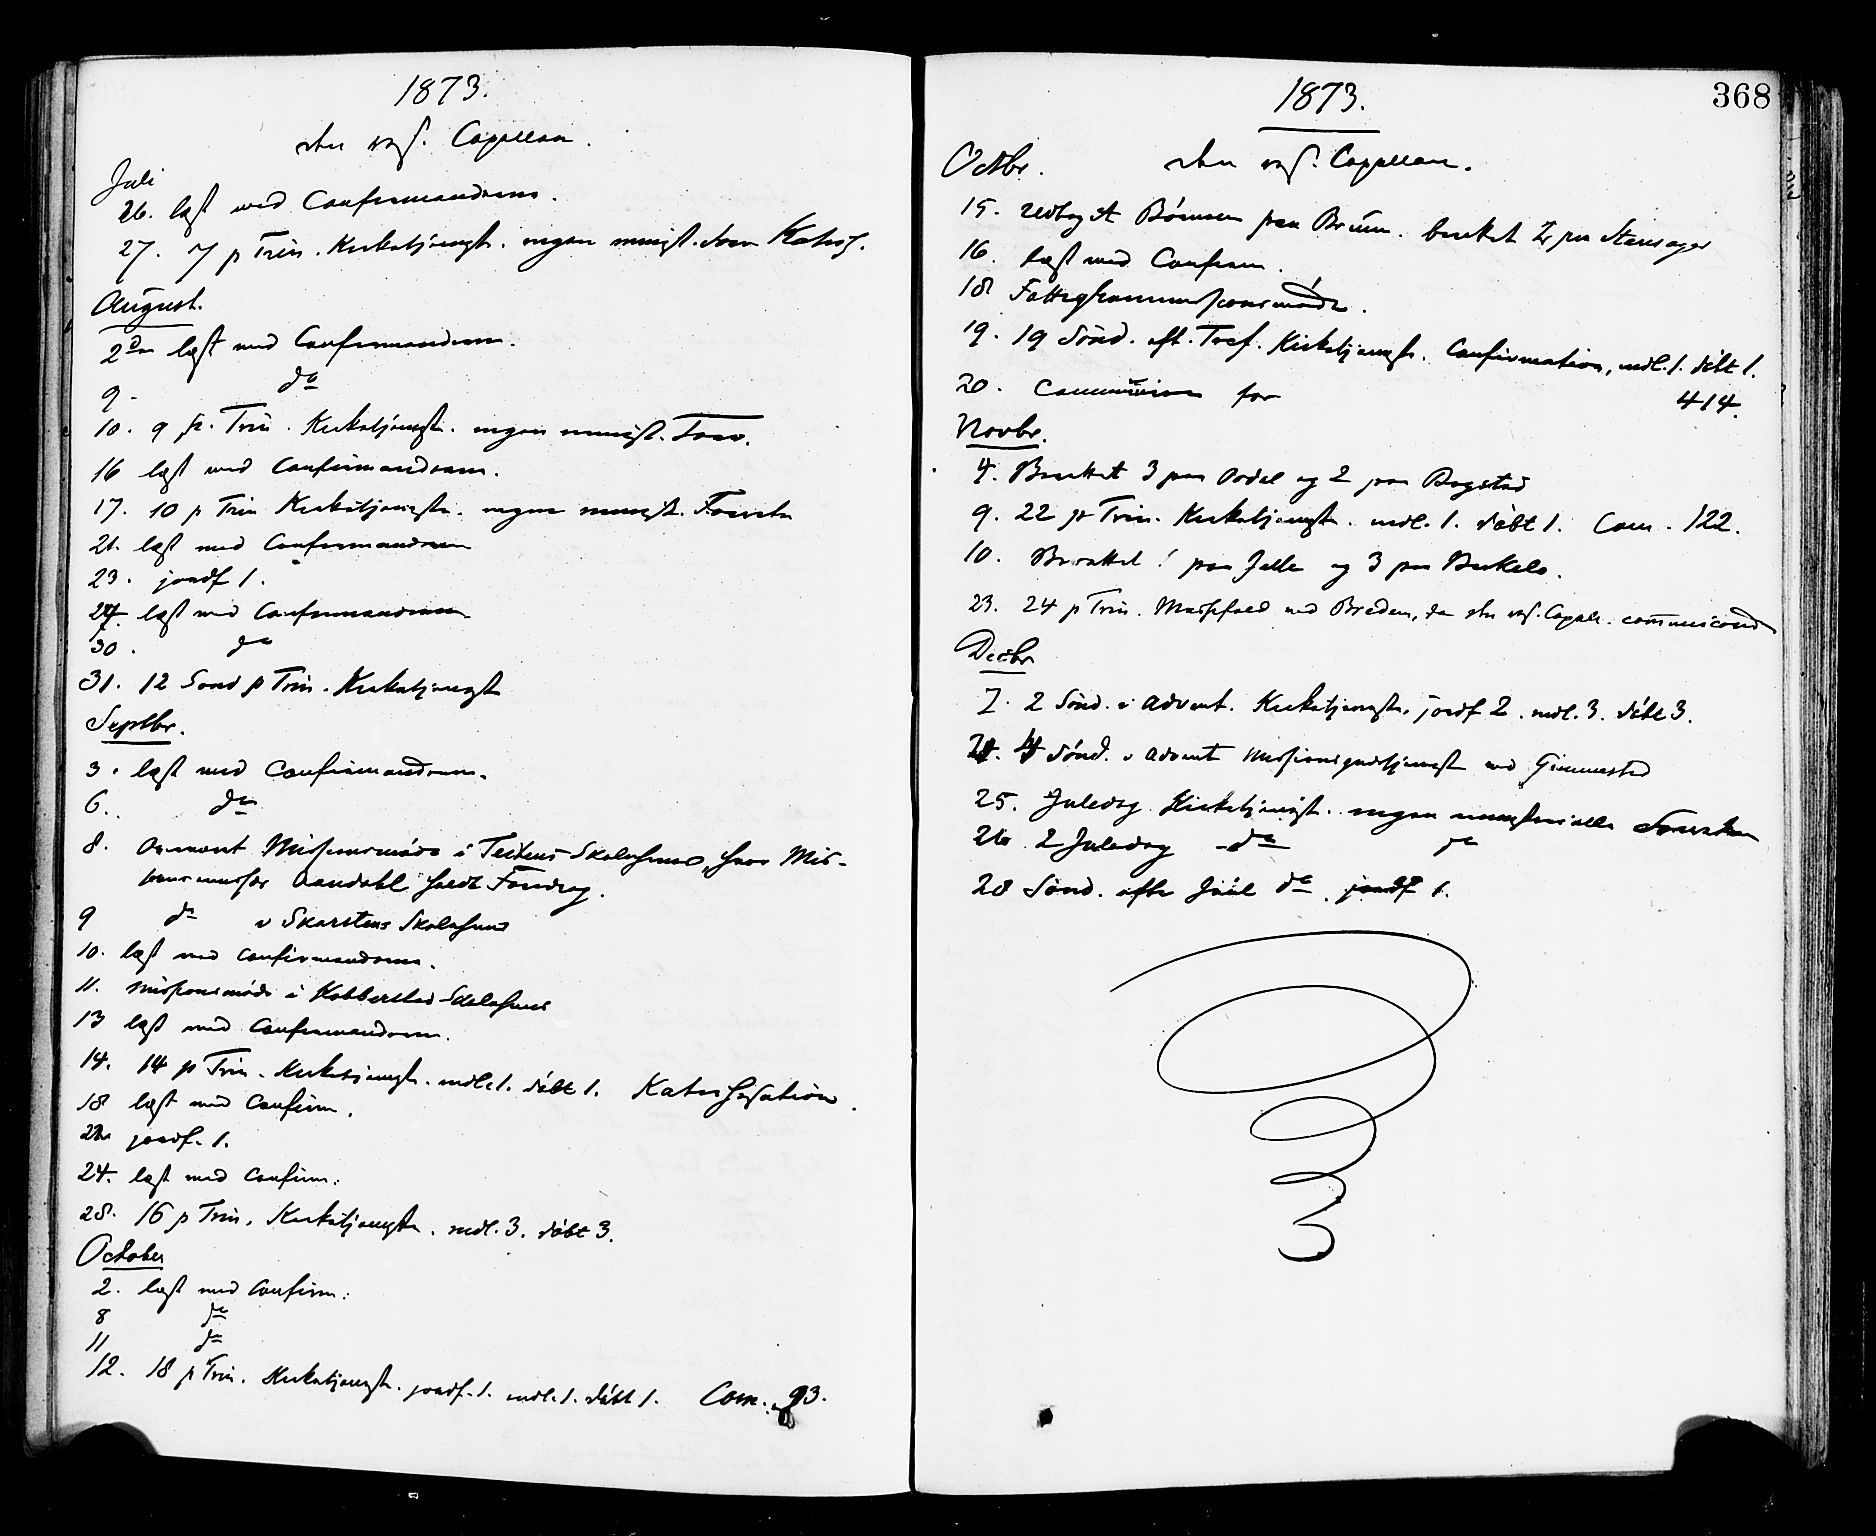 1873.
den res. Capellan.
Juli
26. læst med Confirmanderne.
27. 7 p Trin. Kirketjeneste. ingen minist. Forr Katech.
August.
2den læst med Confirmanderne.
9. do
10. 9 p. Trin. Kirketjeneste. ingen minist. Forr.
16 læst med Confirmanderne.
17. 10 p Trin Kirketjeneste. ingen minist. Forretn
21. læst med Confirmanderne
23. jordf 1.
27. læst med Confirmanderne
30. do
31. 12 Sønd p Trin. Kirketjeneste
Septbr.
3. læst med Confirmanderne.
6. do
8. Missionsmøde i Skolehuus, hvor Mis-
sionair Aandahl holdt Foredrag.
9 do i Skarstens Skolehuus
10. læst med Confirmanderne.
11. Missionsmøde i Skolehuus
13 læst med Confirmanderne.
14. 14 p Trin. Kirketjeneste. indl. 1. døbt 1. Katechisation.
18 læst med Confirm.
jordf. 1.
24. læst med Confirm.
28. 16 p Trin. Kirketjeneste. indl. 3. døbt 3.
October
2. læst med Confirm:
8 do
11 do
12. 18 p Trin. Kirketjeneste. jordf. 1. indl. 1. døbt 1. Com. 93.
368
1873.
Octbr. den res. Capellan.
15. Børnene paa
16. læst med Confirm.
18 Fattigkommissionsmøde.
19. 19 Sønd. eft. Tref. Kirketjeneste. Confirmation, indl. 1. døbt 1.
20. Communion for 414.
Novbr.
4. 3 paa og 2 paa
9. 22 p Trin. Kirketjeneste. indl. 1. døbt 1. Com. 122.
10. paa og 3 paa
23. 24 p Trin. Messefald ved Bredem, da den res. Capell. communicerede
Decbr
7. 2 Sønd. i Advent. Kirketjeneste. jordf 2. indl. 3. døbt 3.
21. 4 Sønd. i Advent Missionsgudstjeneste ved Gimmestad
25. Juledag Kirketjeneste. ingen ministerielle Forretn
26 2 Juledag do do
28 Sønd. efter Juul do. jordf 1.